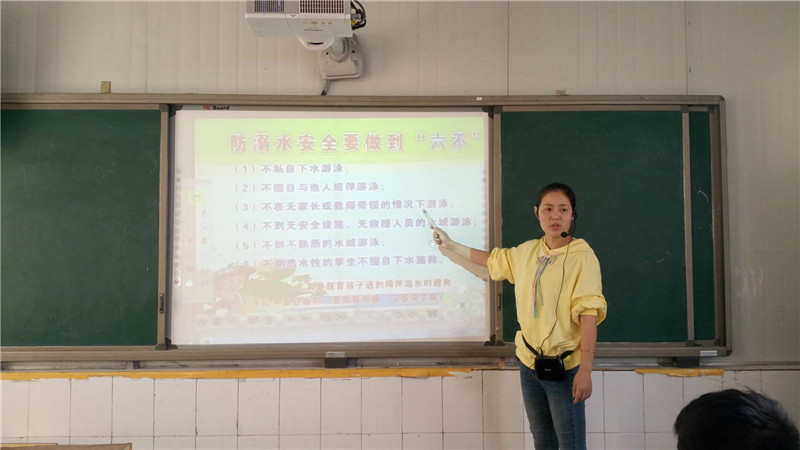 防溺水安全要做到“六不”
（1）不私自下水游泳；
（2）不擅自与他人结伴游泳；
（3）不在无家长或教师带领的情况下游泳；
（4）不到无安全设施、无救援人员的水域游泳；
（5）不到不熟悉的水域游泳；
（6）不熟悉水性的学生不擅自下水施救。
教育孩子遇到同伴溺水时避免